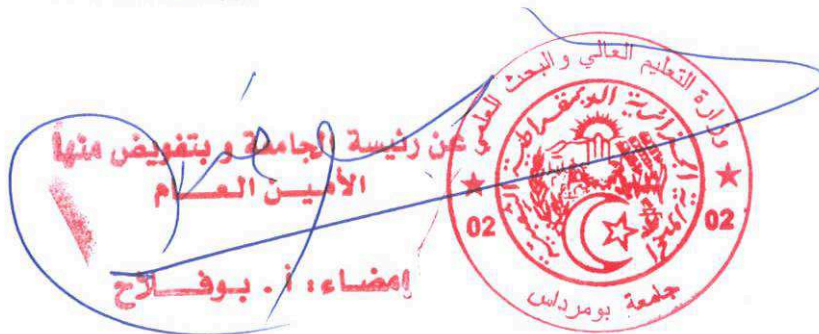 عن رئيسة الجامعة و بتفويض منها
الأمين العام
إمضاء: أ. بوفلاح
وزارة التعليم العالي والبحث العلمي
الجمهورية الجزائرية الديمقراطية الشعبية
02
02
جامعة بومرداس